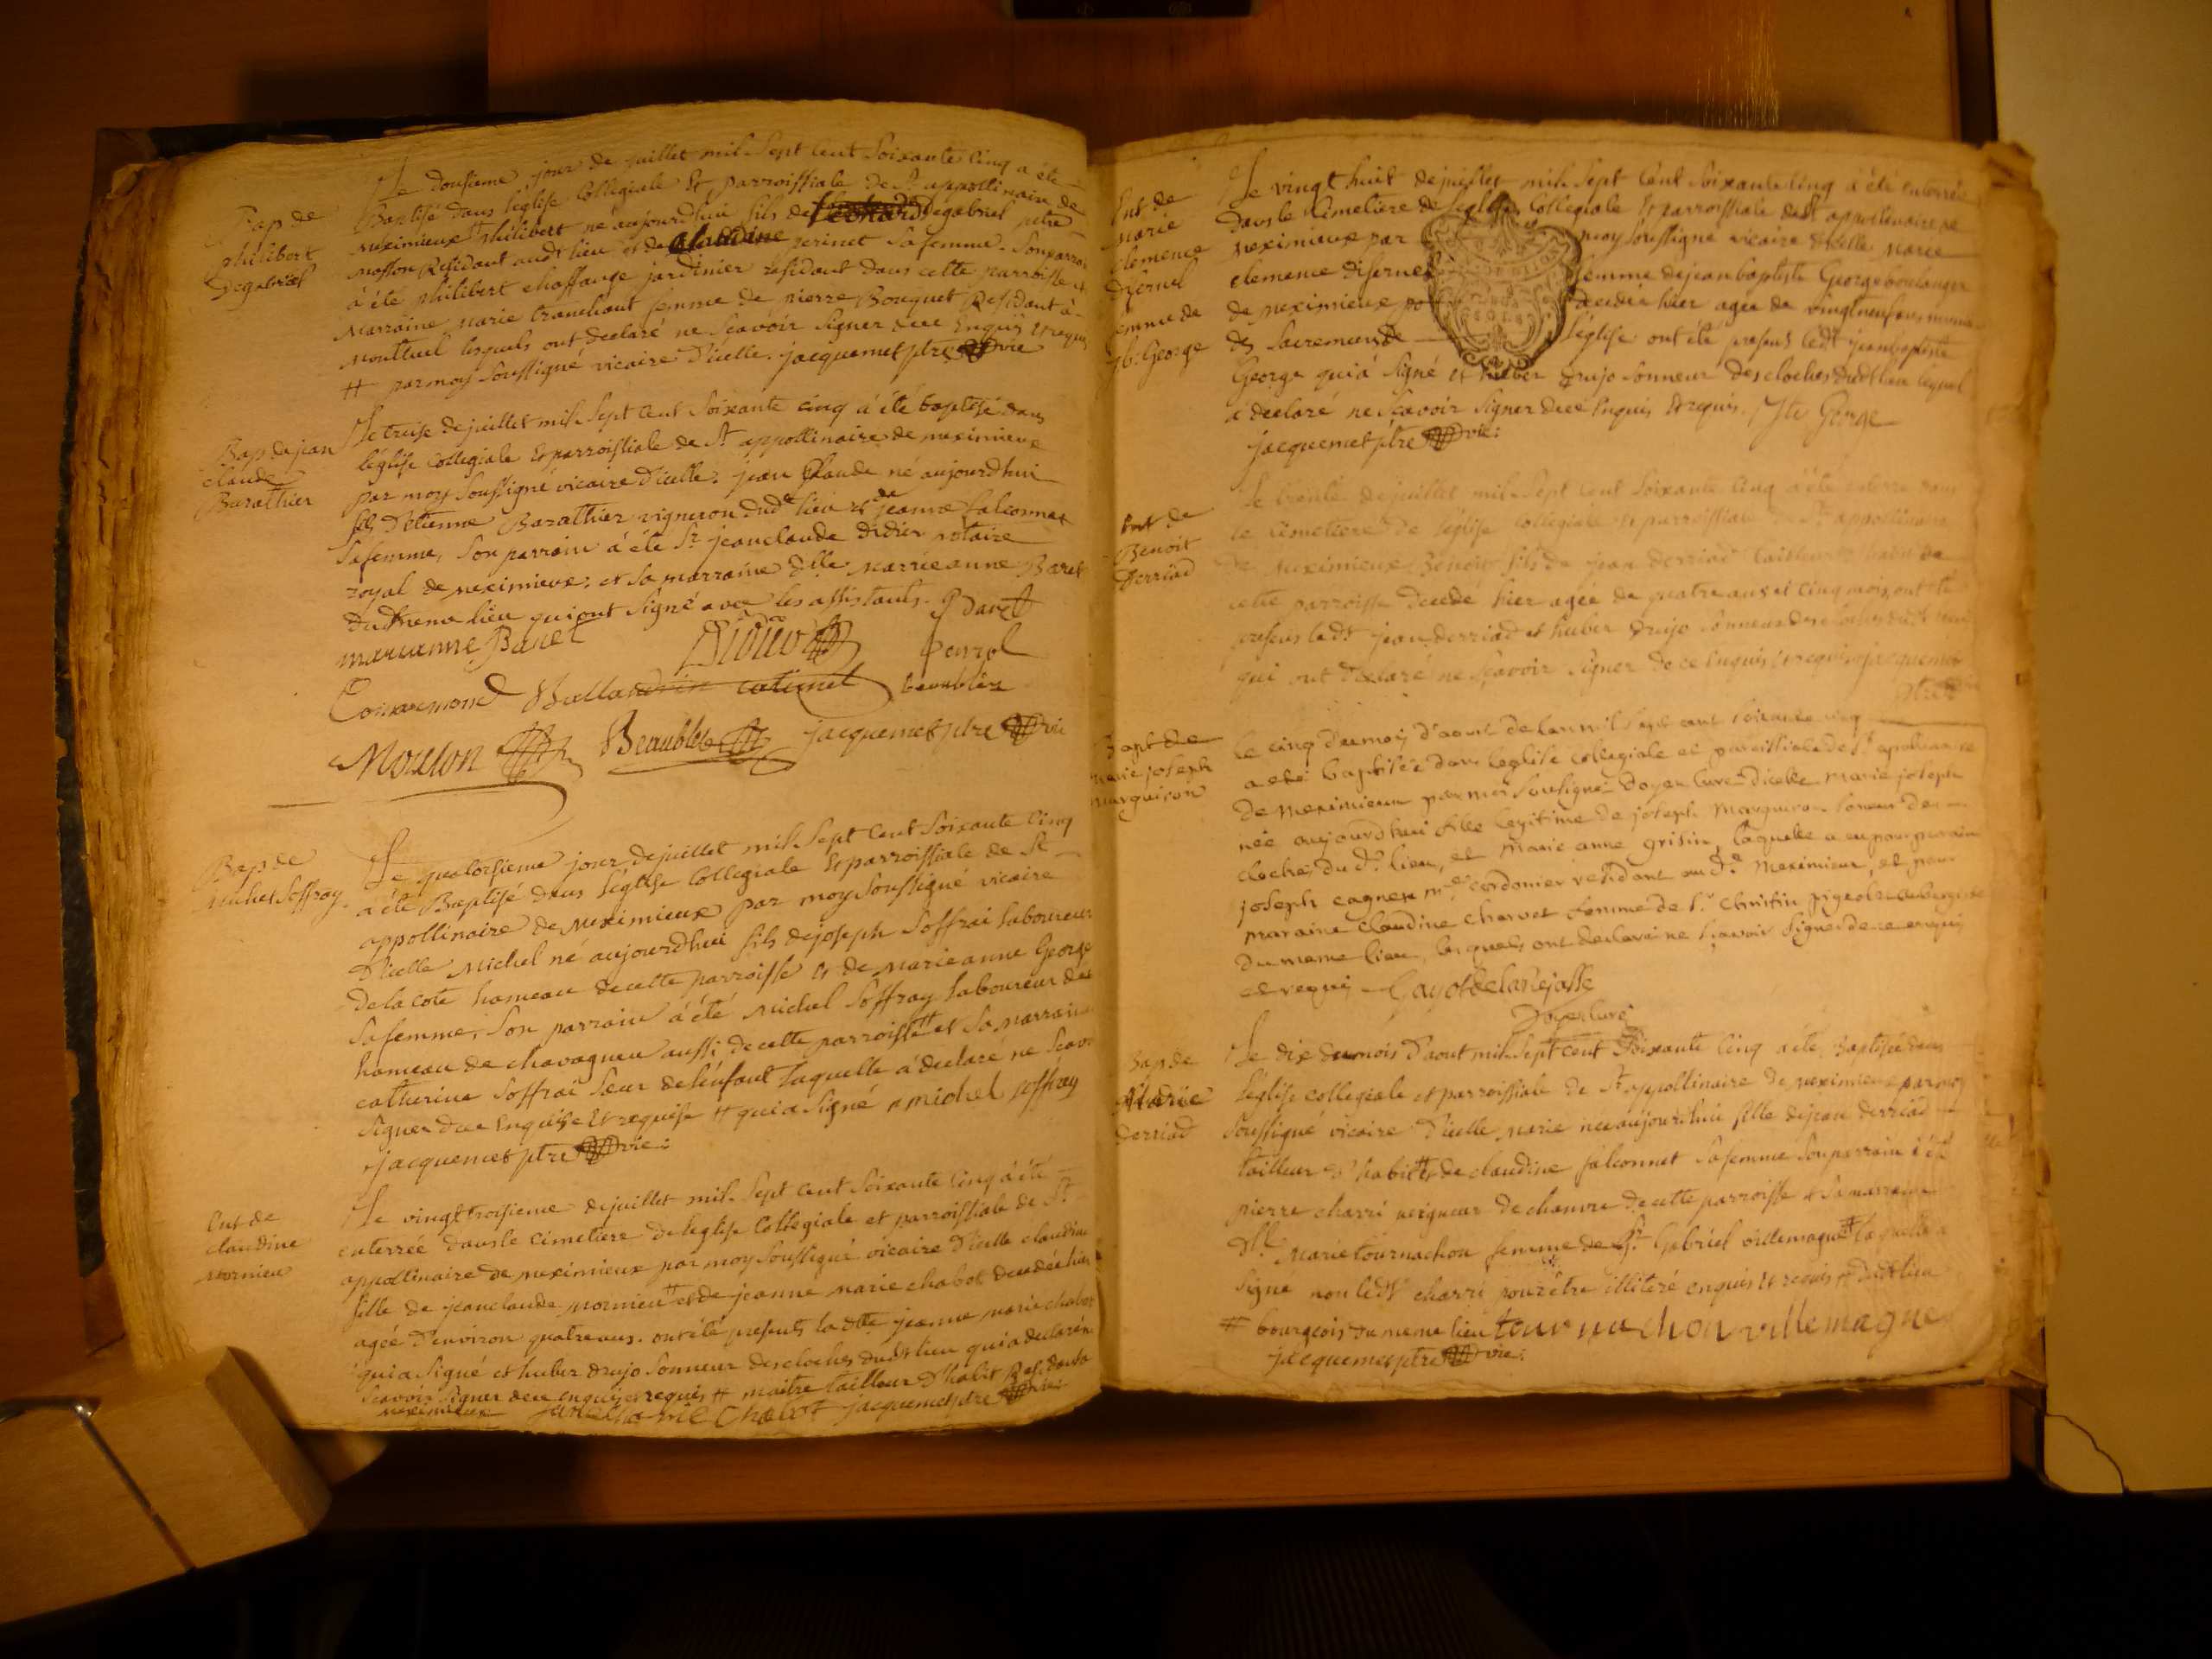 Bap de
philibert
Degabriel
Le dousieme jour de juillet mil Sept Cent Soixante Cinq a été
Baptisé Dans l'église Collegiale Et parroissiale de St appollinaire de
meximieux # philibert né aujourdhui fils de Degabriel
masson Residant audt lieu et de Claudine perinet Sa femme. Son parrain
à été philibert chaffange jardinier residant dans cette parroisse et
marraine marie tranchant femme de pierre Bouquet Residant à
montluel lesquels ont declaré ne Scavoir Signer dece Enquis et requis
# par moy Soussigné vicaire d'icelle. jacquemet ptre vic
Bap de jean
claude
Barathier
Le treise de juillet mil Sept Cent Soixante cinq à été baptisé dans
l'église Collegiale Et parroissiale de St appollinaire de meximieux
par moy Soussigné vicaire d'icelle. jean Claude né aujourdhui
fils d'étienne Barathier vigneron dudt lieu et de jeanne falconnet
Sa femme, Son parrain à été Sr jean claude Didier notaire
royal de meximieux. et Sa marraine dlle marrie anne Baret
du meme lieu qui ont Signé avec les assistants.
marianne Baret
Beaublez
Moulon Beaublez jacquemet ptre vic
Bap de
michel Soffray
Le quatorsieme jour de juillet mil Sept Cent Soixante Cinq
a été Baptisé dans l'église Collegiale Et parroissiale de St
appollinaire de meximieux par moy Soussigné vicaire
d'icelle michel né aujourdhui fils de joseph Soffrai laboureur
De la cote hameau de cette parroisse et de marie anne George
Sa femme, Son parrain à été michel Soffray laboureur du
hameau de chavagneu aussi de cette parroisse # et Sa marraine
catherine Soffrai Sœur de l'enfant laquelle à declaré ne Scavoir
Signer dece Enquise Et requise # qui a Signé michel soffray
jacquemet ptre vic:
Ent de
claudine
mornieu
Le vingt troisieme de juillet mil Sept Cent Soixante Cinq à été
enterrée dans le cimetiere de l'eglise Collegiale et parroissiale de St
appollinaire de meximieux par moy Soussigné vicaire d'icelle claudine
fille de jean claude mornieu # et de jeanne marie chabot decedée hier
agée d'environ quatre ans. ont été presents ladte jeanne marie chabot
qui a Signé et huber drujo Sonneur des cloches dudt lieu qui a declaré ne
Scavoir Signer dece enquis et requis # maitre tailleur d'habit Residant a
meximieux chabot jacquemet ptre vic:
Ent de
marie
clemence
disernel
femme de
jb. George
Le vingt huit de juillet mil Sept Cent Soixante Cinq à été enterrée
Dans le Cimetiere de l'eglise Collegiale Et parroissiale de St appollinaire de
meximieux par moy Soussigné vicaire d'icelle marie
clemence disernel femme de jean baptiste George boulanger
de meximieux decedée hier agée de vingt neuf ans munie
des Sacremens de l'église ont été presens ledt jean baptiste
George qui à Signé et huber Drujo Sonneur des cloches dudt lieu lequel
à declaré ne Scavoir Signer dece Enquis Et requis. George
jacquemet ptre vic:
Ent de
Benoit
Derriad
Le trente de juillet mil Sept Cent Soixante Cinq à été enterré dans
le cimetiere de l'église Collegiale et parroissiale de St appollinaire
de meximieux Benoit fils de jean derriad tailleur d'habit de
cette parroisse decedé hier agée de quatre ans et cinq mois ont été
presens ledt jean derriad et huber drujo Sonneur des cloches dudt lieu
qui ont declaré ne Scavoir Signer de ce Enquis et requis jacquemet
ptre vic
Bapt de
marie joseph
marguiron
Le cinq du mois d'aout de lan mil sept cent soixante cinq
a été baptisée dans leglise collegiale et paroissiale de St apollinaire
de meximieux par moi soussigné doyen curé dicelle marie joseph
née aujourdhui fille legitime de joseph marguiron soneur des
cloches du dt lieu, et marie anne grisin, laquelle a eu pour parain
joseph cagner mtre cordonier residant au dt meximieux, et pour
maraine claudine charvet femme de Sr pigeolet aubergiste
du meme lieu, lesquels ont declaré ne sçavoir signer de ce enquis
et requis
Doyen Curé
Bap de
Marie
derriad
Le dix du mois d'aout mil Sept Cent Soixante Cinq a été Baptisée dans
l'église collegiale et parroissiale de St appollinaire de meximieux par moy
Soussigné vicaire d'icelle marie née aujourdhui fille de jean derriad
tailleur d'habit et de claudine falconnet Sa femme Son parrain à été
pierre charri peigneur de chanvre de cette parroisse et Sa marraine
dlle marie tournachon femme de Sr Gabriel villemagne # laquelle a
Signé non ledt charri pour être illiteré enquis et requis # dudt lieu
# bourgeois du meme lieu tournachon villemagne
jacquemet ptre vic: